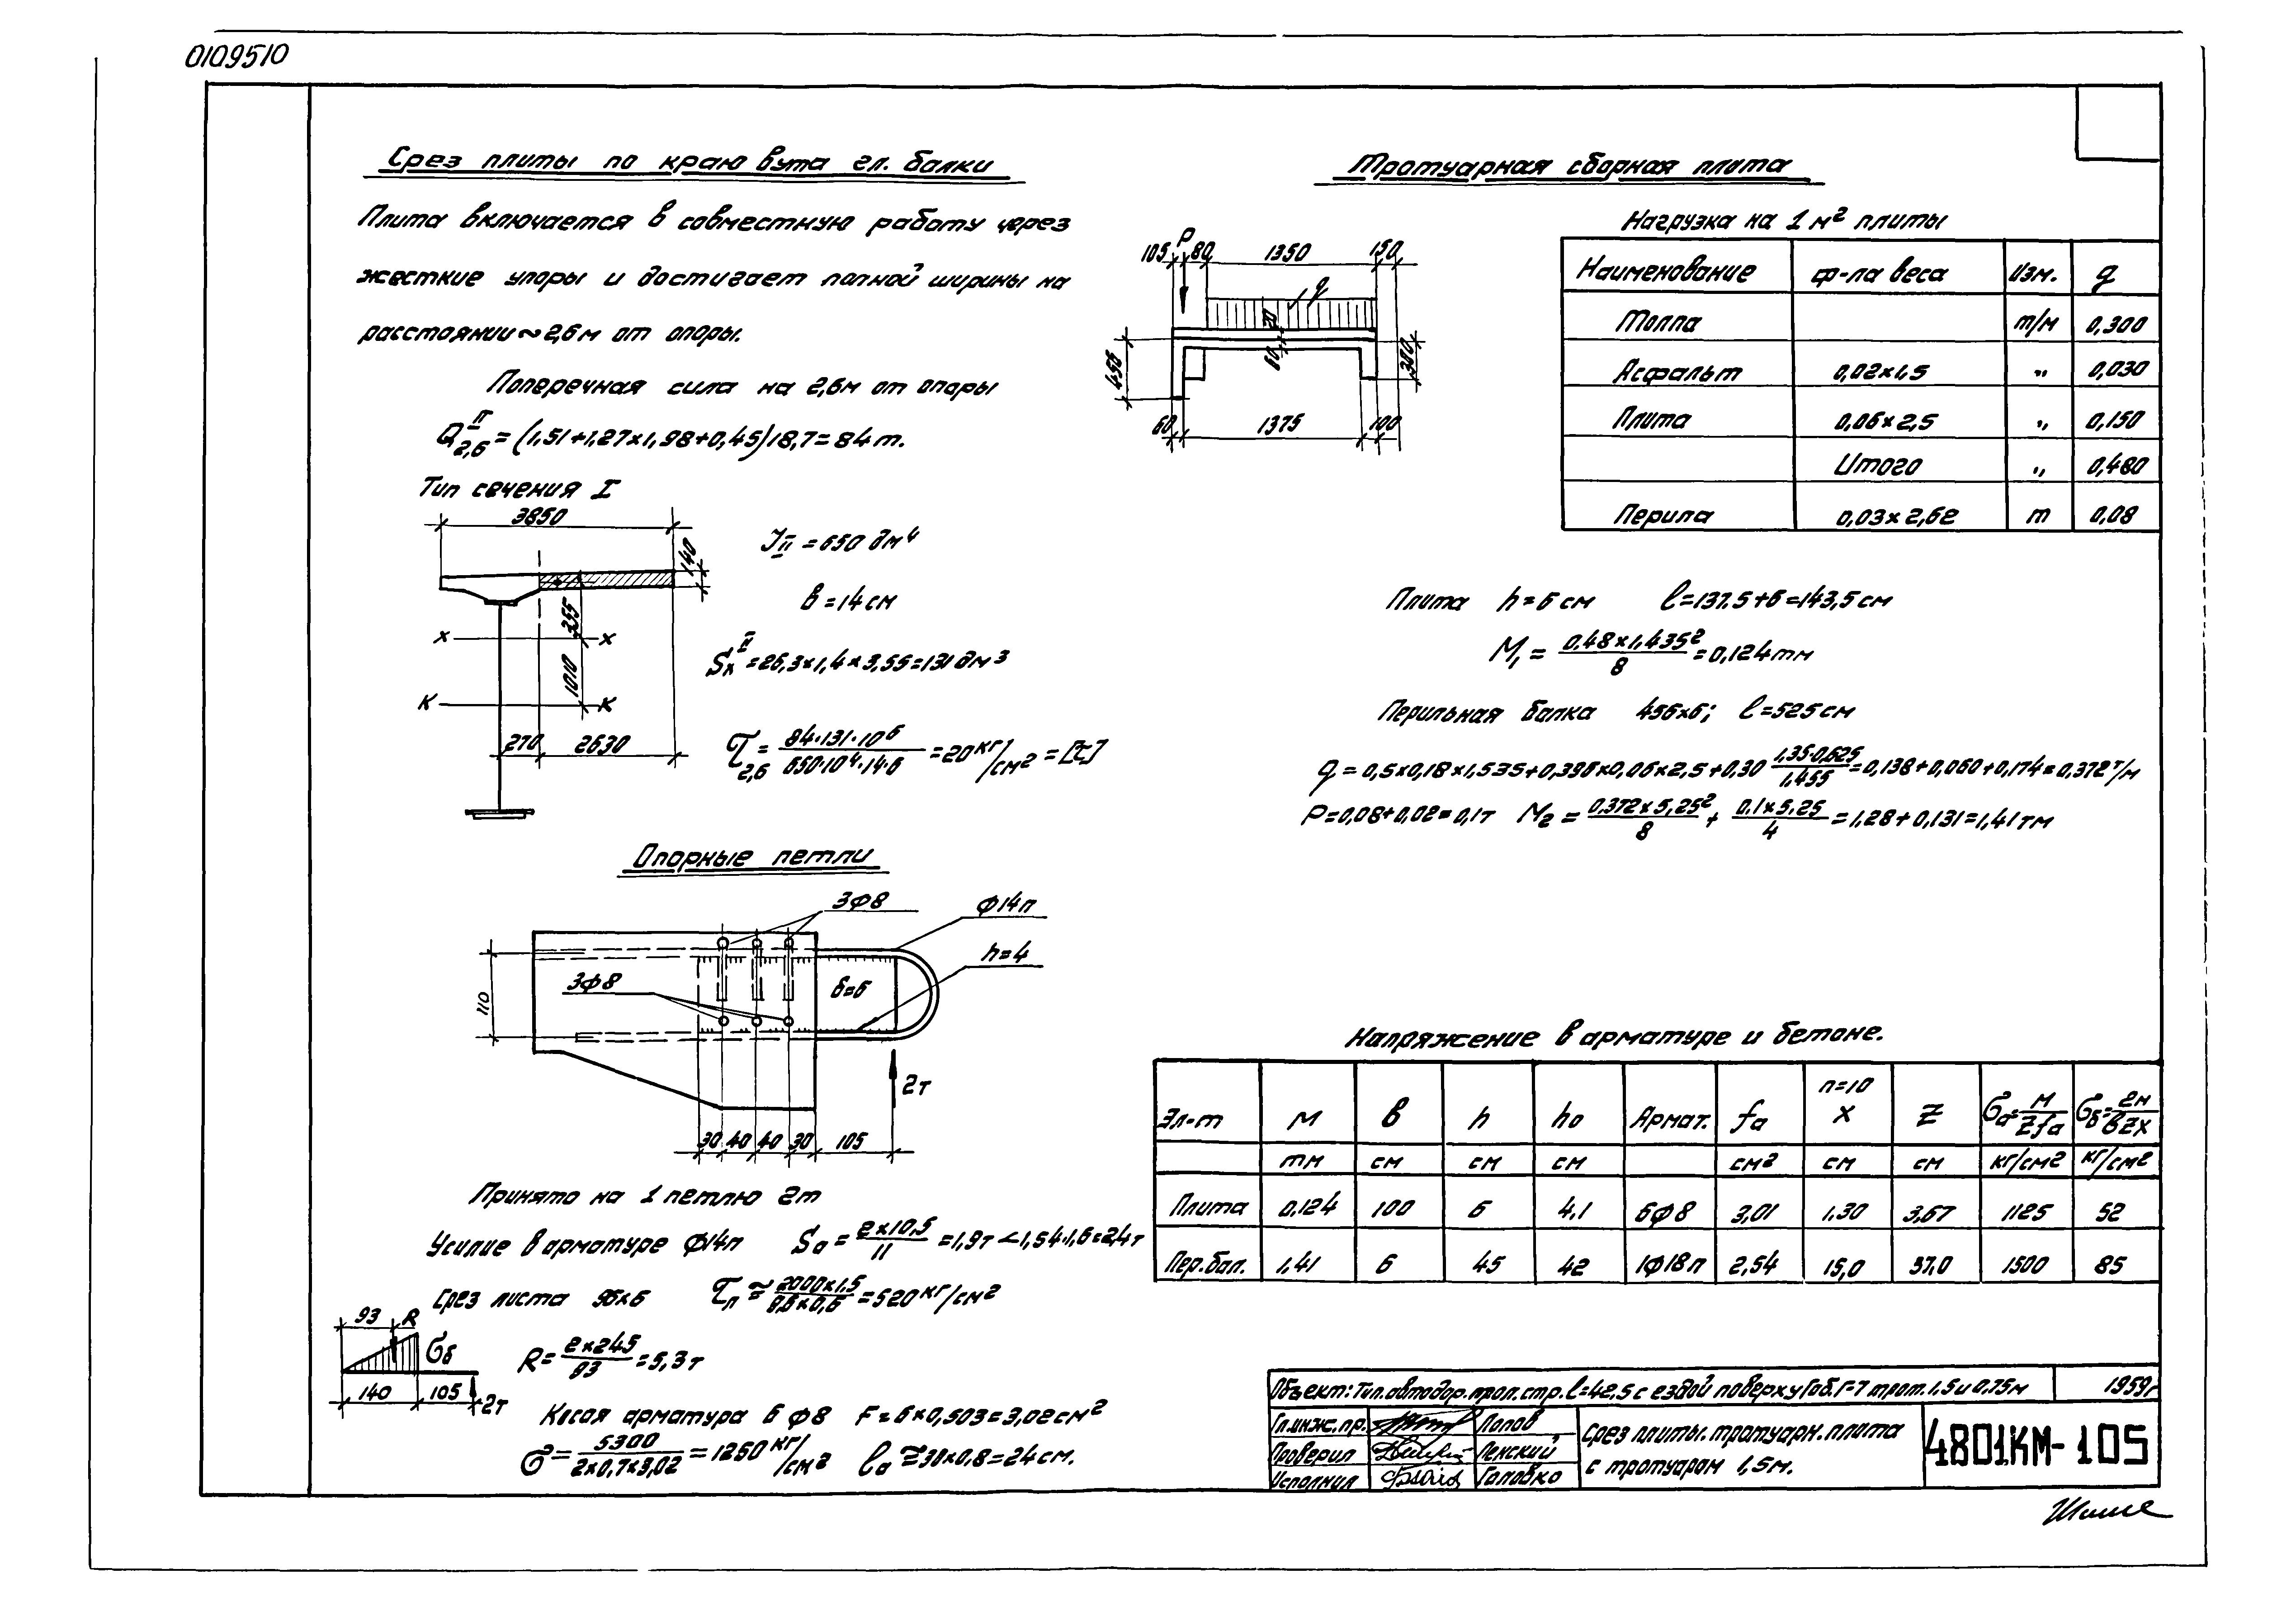 0109510
Срез плиты по краю вута гл. балки
Плита включается в совместную работу через
жесткие упоры и достигает полной ширины на
расстоянии ~ 2,6 м от опоры.
Поперечная сила на 2,6м от опоры
Q II 2,6 = (1,51+1,27×1,98+0,45)18,7=84т.
Тип сечения I
3850
140
355
1010
х х
К К
270 2630
J II = 650 дм⁴
в = 14 см
Sx II = 26,3×1,4×3,55=131 дм³
τ 2,6 = 84·131·10⁶ / 650·10⁴·14·6 = 20 кг/см² = [τ]
Опорные петли
3ф8
ф14п
h=4
3ф8
δ=6
110
2т
30 40 40 30 105
Принято на 1 петлю 2т
Усилие в арматуре ф14п Sa = 2×10,5 / 11 = 1,9т < 1,54·1,6=2,4т
Срез листа 96×6 τл ≈ 2000×1,5 / 9,6×0,6 = 520 кг/см²
93 R
σб
140 105
2т
R = 2×245 / 93 = 5,3т
Косая арматура 6 ф8 F = 6×0,503=3,02см²
σ = 5300 / 2×0,7×3,02 = 1250 кг/см² ℓa ≅ 30×0,8=24см.
Тротуарная сборная плита
P
105 80 1350 150
q
20
60
456
380
60 1375 100
Нагрузка на 1 м² плиты
Наименование ф-ла веса Изм. q
Толпа т/м 0,300
Асфальт 0,02×1,5 " 0,030
Плита 0,06×2,5 " 0,150
Итого " 0,480
Перила 0,03×2,62 т 0,08
Плита h=6 см ℓ=137,5+6=143,5 см
M₁ = 0,48×1,435² / 8 = 0,124тм
Перильная балка 456×6; ℓ=525 см
q = 0,5×0,18×1,535+0,396×0,06×2,5+0,30 1,35·0,625 / 1,455 = 0,138+0,060+0,174=0,372 т/м
P=0,08+0,02=0,1т M₂ = 0,372×5,25² / 8 + 0,1×5,25 / 4 = 1,28+0,131=1,41тм
Напряжение в арматуре и бетоне.
Эл-т М в h h₀ Армат. fa n=10 х Z σa=М/Zfa σб=2м/вzх
тм см см см см² см см кг/см² кг/см²
Плита 0,124 100 6 4,1 6ф8 3,01 1.30 3,67 1125 52
Пер.бал. 1,41 6 45 42 1ф18п 2,54 15,0 37,0 1500 85
Объект: Тип.автодор.прол.стр. ℓ=42,5 с ездой поверху Габ.Г-7 трот. 1,5 и 0,75м 1959г
Гл.инж.пр. Попов
Проверил Ленский
Исполнил Головко
Срез плиты. тротуарн. плита
с тротуаром 1,5м.
4801КМ-105